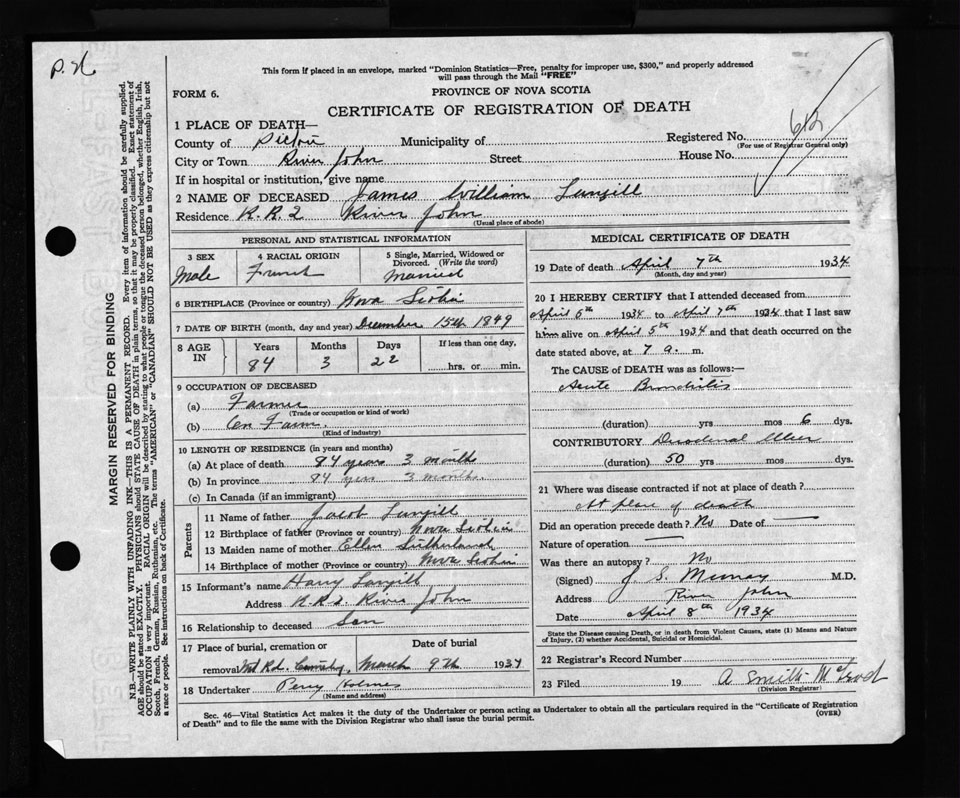 This form if placed in an envelope, marked "Dominion Statistics—Free, penalty for improper use, $300," and properly addressed
will pass through the Mail "FREE"
FORM 6.
PROVINCE OF NOVA SCOTIA
CERTIFICATE OF REGISTRATION OF DEATH
1 PLACE OF DEATH—
County of Pictou Municipality of Registered No.
(For use of Registrar General only)
City or Town River John Street House No.
If in hospital or institution, give name
2 NAME OF DECEASED James William Langill
Residence R.R.2 River John
(Usual place of abode)
PERSONAL AND STATISTICAL INFORMATION
3 SEX 4 RACIAL ORIGIN 5 Single, Married, Widowed or
Divorced. (Write the word)
Male French Married
6 BIRTHPLACE (Province or country) Nova Scotia
7 DATE OF BIRTH (month, day and year) December 15th 1849
8 AGE IN Years Months Days If less than one day,
84 3 22 hrs. or min.
9 OCCUPATION OF DECEASED
(a) Farmer
(Trade or occupation or kind of work)
(b) On Farm
(Kind of industry)
10 LENGTH OF RESIDENCE (in years and months)
(a) At place of death 84 years 3 months
(b) In province 84 years 3 months
(c) In Canada (if an immigrant)
Parents
11 Name of father Jacob Langill
12 Birthplace of father (Province or country) Nova Scotia
13 Maiden name of mother Ellen Sutherland
14 Birthplace of mother (Province or country) Nova Scotia
15 Informant's name Harry Langill
Address R.R.2. River John
16 Relationship to deceased Son
17 Place of burial, cremation or Date of burial
removal Rd. Cemetery, March 9th 1934
18 Undertaker Percy Holmes
(Name and address)
MEDICAL CERTIFICATE OF DEATH
19 Date of death April 7th 1934
(Month, day and year)
20 I HEREBY CERTIFY that I attended deceased from
April 5th 1934 to April 7th 1934 that I last saw
him alive on April 5th 1934 and that death occurred on
date stated above, at 7 a. m.
The CAUSE OF DEATH was as follows:—
Acute Bronchitis
(duration) yrs mos 6 dys.
CONTRIBUTORY Duodenal Ulcer
(duration) 50 yrs mos. dys.
21 Where was disease contracted if not at place of death?
At place of death
Did an operation precede death? No Date of —
Nature of operation —
Was there an autopsy? No
(Signed) J. S. Murray M.D.
Address River John
Date April 8th 1934
State the Disease causing Death, or in death from Violent Causes, state (1) Means and Nature
of Injury, (2) whether Accidental, Suicidal or Homicidal.
22 Registrar's Record Number
23 Filed 19 A Smith McLeod
(Division Registrar)
Sec. 46—Vital Statistics Act makes it the duty of the Undertaker or person acting as Undertaker to obtain all the particulars required in the "Certificate of Registration
of Death" and to file the same with the Division Registrar who shall issue the burial permit.
(OVER)
MARGIN RESERVED FOR BINDING
N.B.—WRITE PLAINLY WITH UNFADING INK—THIS IS A PERMANENT RECORD. Every item of information should be carefully supplied.
AGE should be stated EXACTLY. PHYSICIANS should STATE CAUSE OF DEATH in plain terms, so that it may be properly classified. Exact statement of
OCCUPATION is very important. RACIAL ORIGIN will be described by stating to what people or tongue the deceased person belonged, whether English, Irish,
Scotch, French, German, Russian, Ruthenian, etc. The terms "AMERICAN" or "CANADIAN" SHOULD NOT BE USED as they express citizenship but not
a race or people. See instructions on back of Certificate.